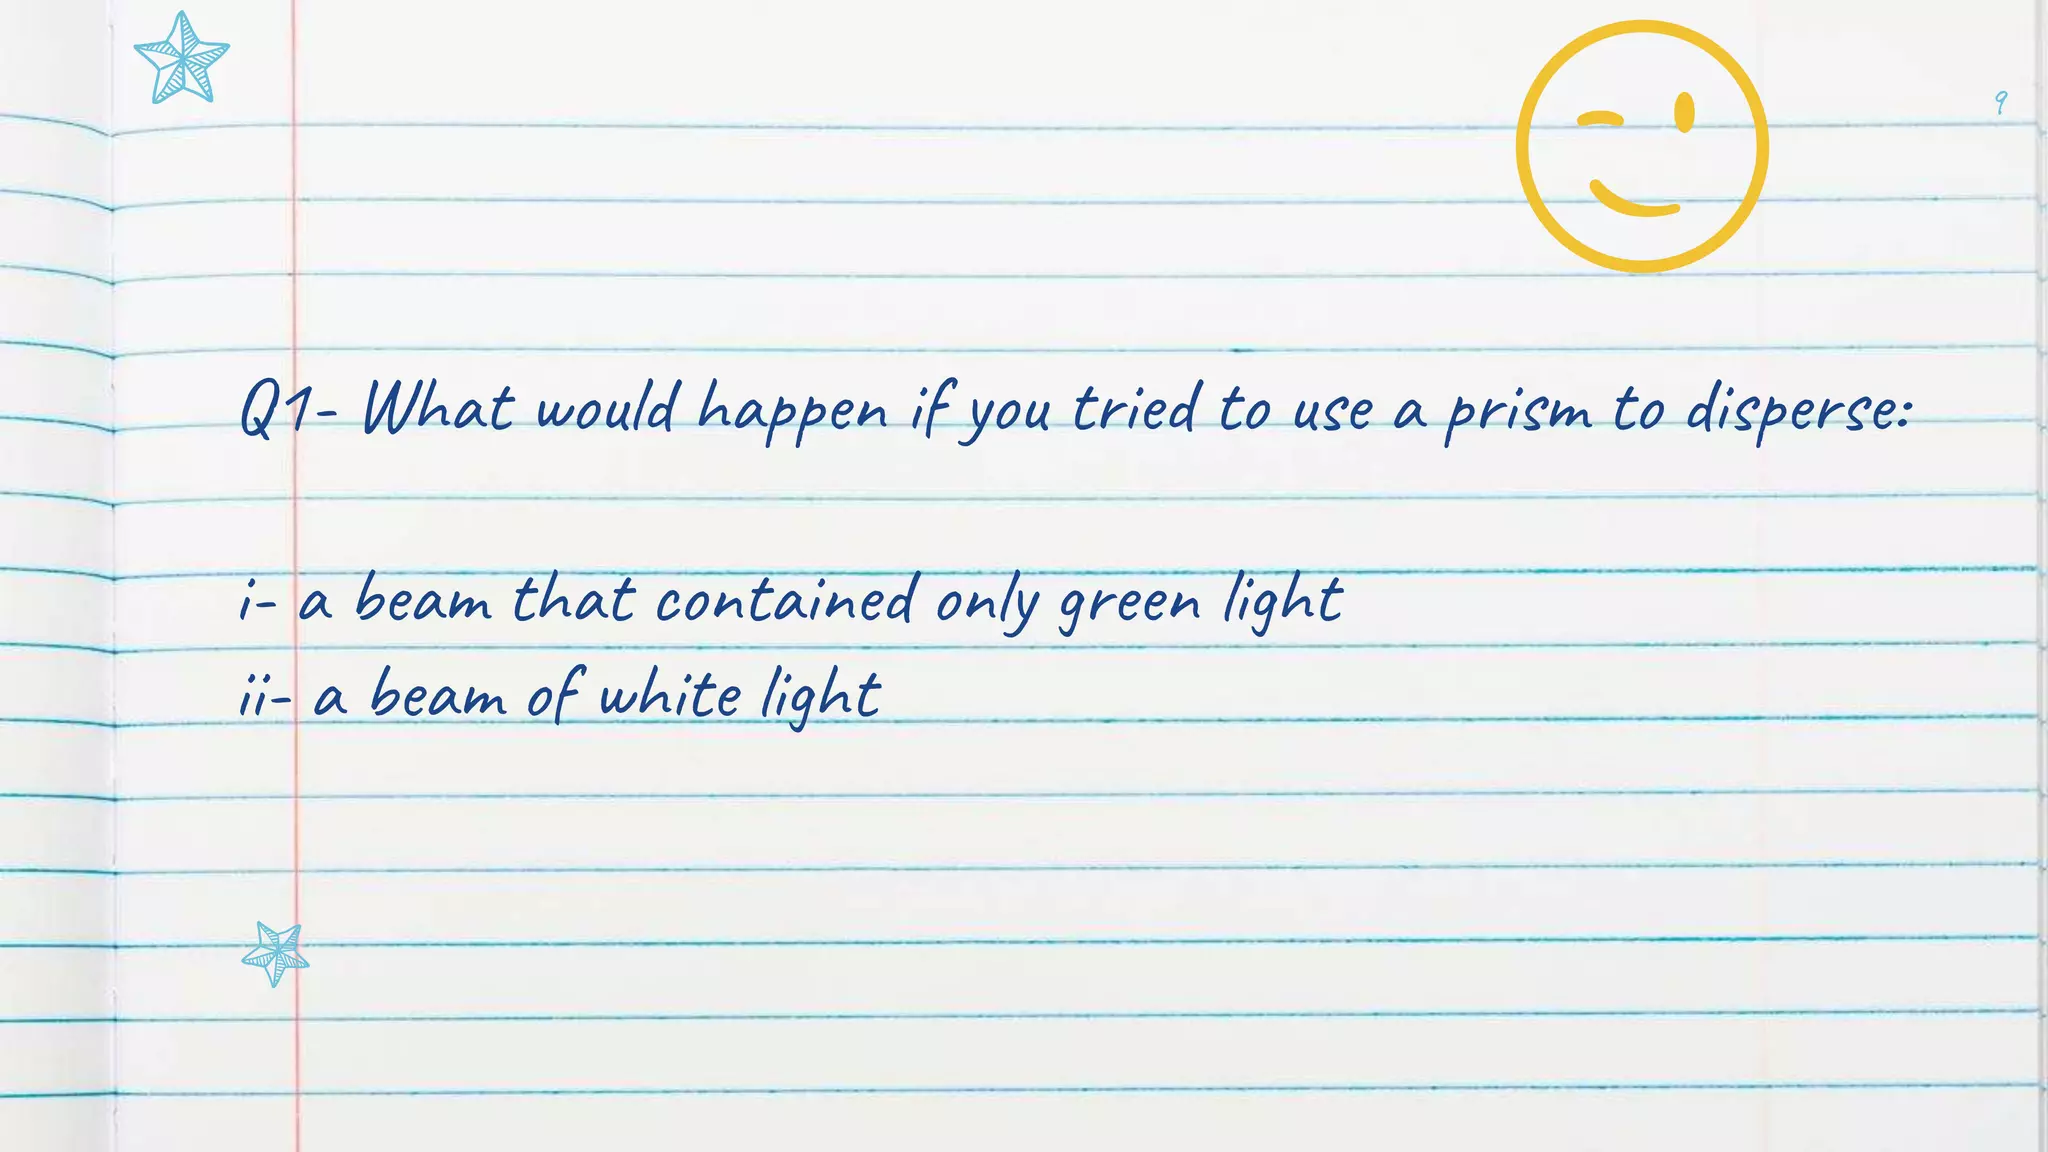 9
Q1- What would happen if you tried to use a prism to disperse:
i- a beam that contained only green light
ii- a beam of white light